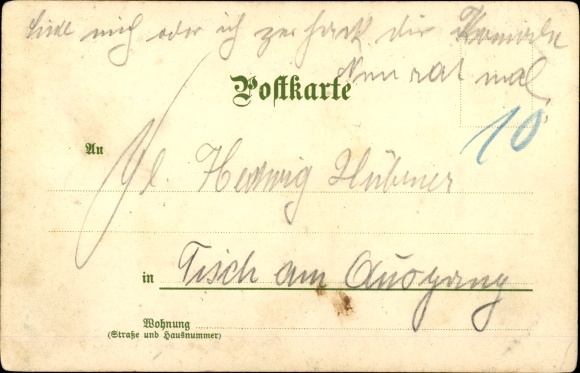 Liebe mich oder ich zerhack dir
Nun rat mal
Postkarte
10
An
Hedwig Hübner
in Tisch am Ausgang
Wohnung
(Straße und Hausnummer)